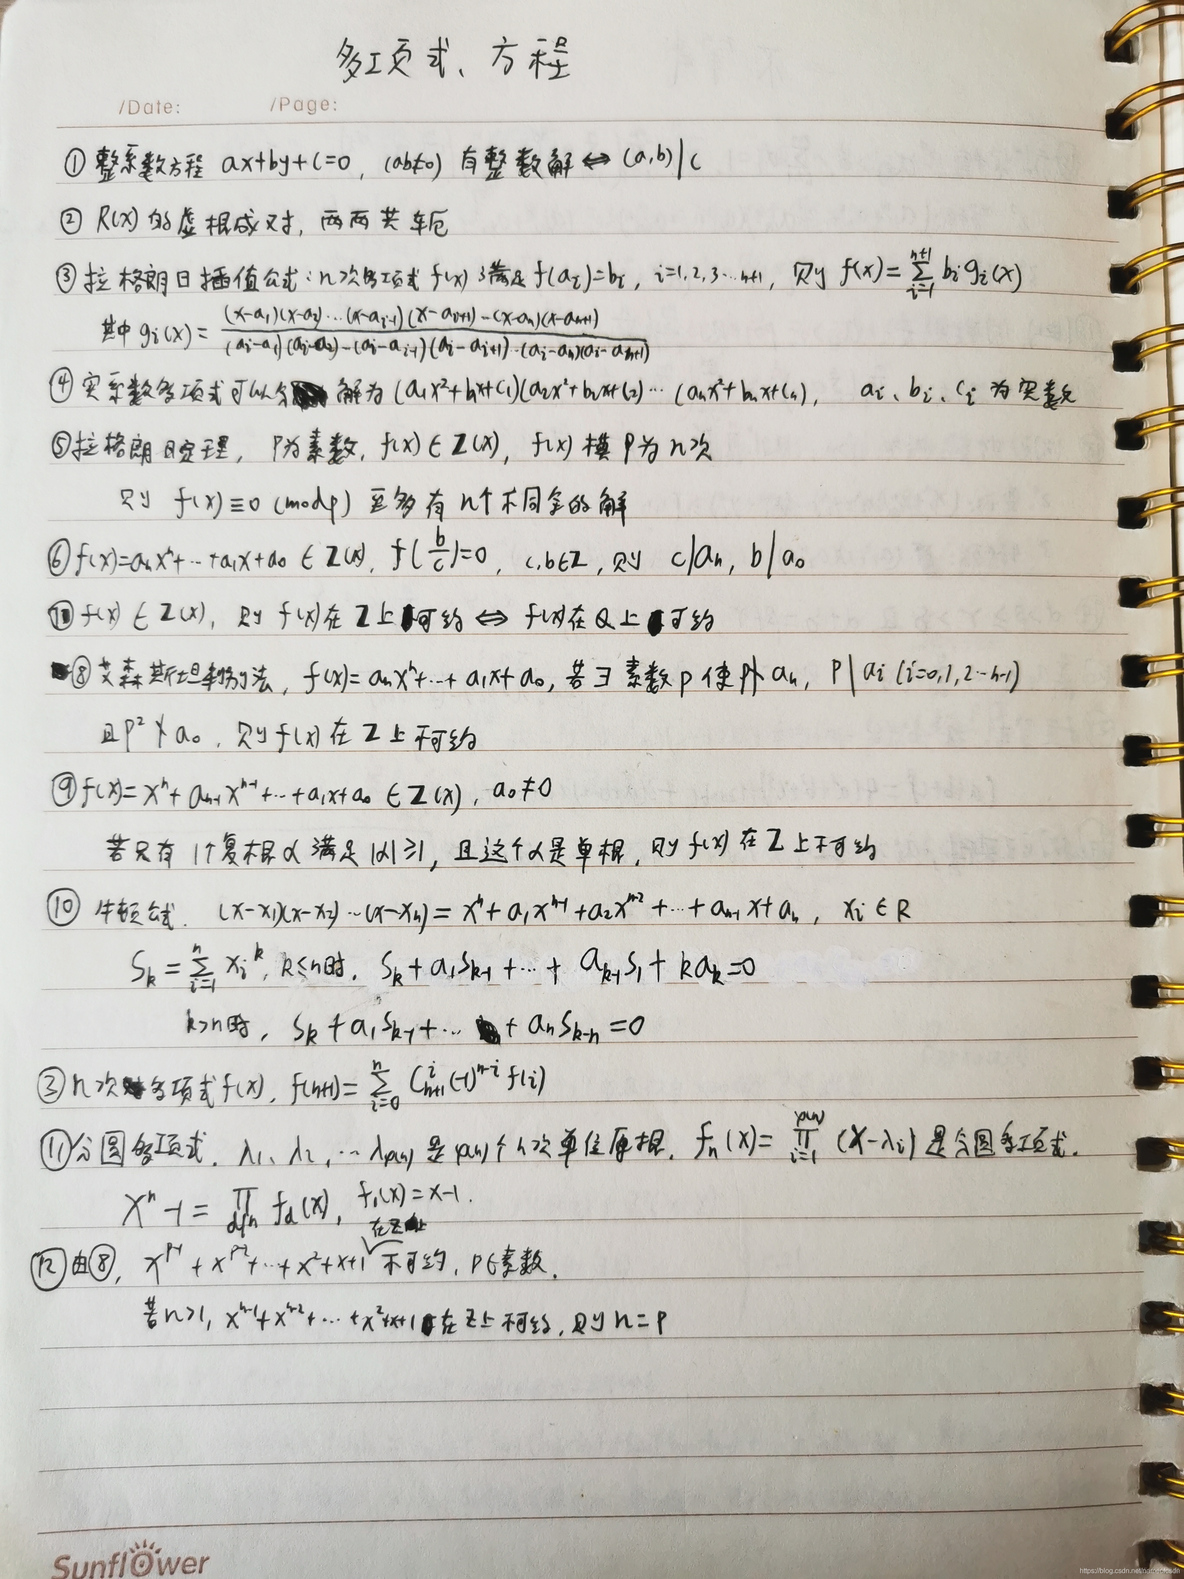 多项式、方程
/Date: /Page:
① 整系数方程 ax+by+c=0, (ab≠0) 有整数解 ⇔ (a,b)|c
② R(x)的虚根成对, 两两共轭
③ 拉格朗日插值公式: n次多项式 f(x) 满足 f(aᵢ)=bᵢ, i=1,2,3…n+1, 则 f(x)=∑_{i=1}^{n+1} bᵢgᵢ(x)
其中 gᵢ(x)= (x-a₁)(x-a₂)…(x-a_{i-1})(x-a_{i+1})…(x-aₙ)(x-a_{n+1}) / (aᵢ-a₁)(aᵢ-a₂)…(aᵢ-a_{i-1})(aᵢ-a_{i+1})…(aᵢ-aₙ)(aᵢ-a_{n+1})
④ 实系数多项式可以分解为(a₁x²+b₁x+c₁)(a₂x²+b₂x+c₂)…(aₙx²+bₙx+cₙ), aᵢ、bᵢ、cᵢ 为实数
⑤ 拉格朗日定理, P为素数, f(x)∈Z(x), f(x)模P为n次
则 f(x)≡0 (mod p) 至多有n个不同余的解
⑥ f(x)=aₙxⁿ+…+a₁x+a₀ ∈Z(x), f(b/c)=0, c,b∈Z, 则 c|aₙ, b|a₀
f(x)∈Z(x), 则 f(x)在Z上可约 ⇔ f(x)在Q上可约
⑧ 艾森斯坦判别法, f(x)=aₙxⁿ+…+a₁x+a₀, 若∃素数p使p∤aₙ, P|aᵢ (i=0,1,2…n-1)
且p²∤a₀, 则f(x)在Z上不可约
⑨ f(x)=xⁿ+a_{n-1}x^{n-1}+…+a₁x+a₀ ∈Z(x), a₀≠0
若只有1个复根α满足|α|≥1, 且这个α是单根, 则f(x)在Z上不可约
⑩ 牛顿公式. (x-x₁)(x-x₂)…(x-xₙ)=xⁿ+a₁x^{n-1}+a₂x^{n-2}+…+a_{n-1}x+aₙ, xᵢ∈R
S_k=∑_{i=1}^{n} xᵢ^k, k≤n时, S_k+a₁S_{k-1}+…+a_{k-1}S₁+ka_k=0
k>n时, S_k+a₁S_{k-1}+…+aₙS_{k-n}=0
③ n次多项式f(x), f(n+1)=∑_{i=0}^{n} C_{n+1}^{i}(-1)^{n-i}f(i)
⑪ 分圆多项式. λ₁、λ₂、…λ_{φ(n)}是φ(n)个n次单位原根, fₙ(x)=∏_{i=1}^{φ(n)}(x-λᵢ)是分圆多项式.
xⁿ-1=∏_{d|n} f_d(x), f₁(x)=x-1.
在Z上
⑫ 由⑧, x^{p-1}+x^{p-2}+…+x²+x+1 不可约, P∈素数.
若n>1, x^{n-1}+x^{n-2}+…+x²+x+1在Z上不可约, 则n=P
Sunflower